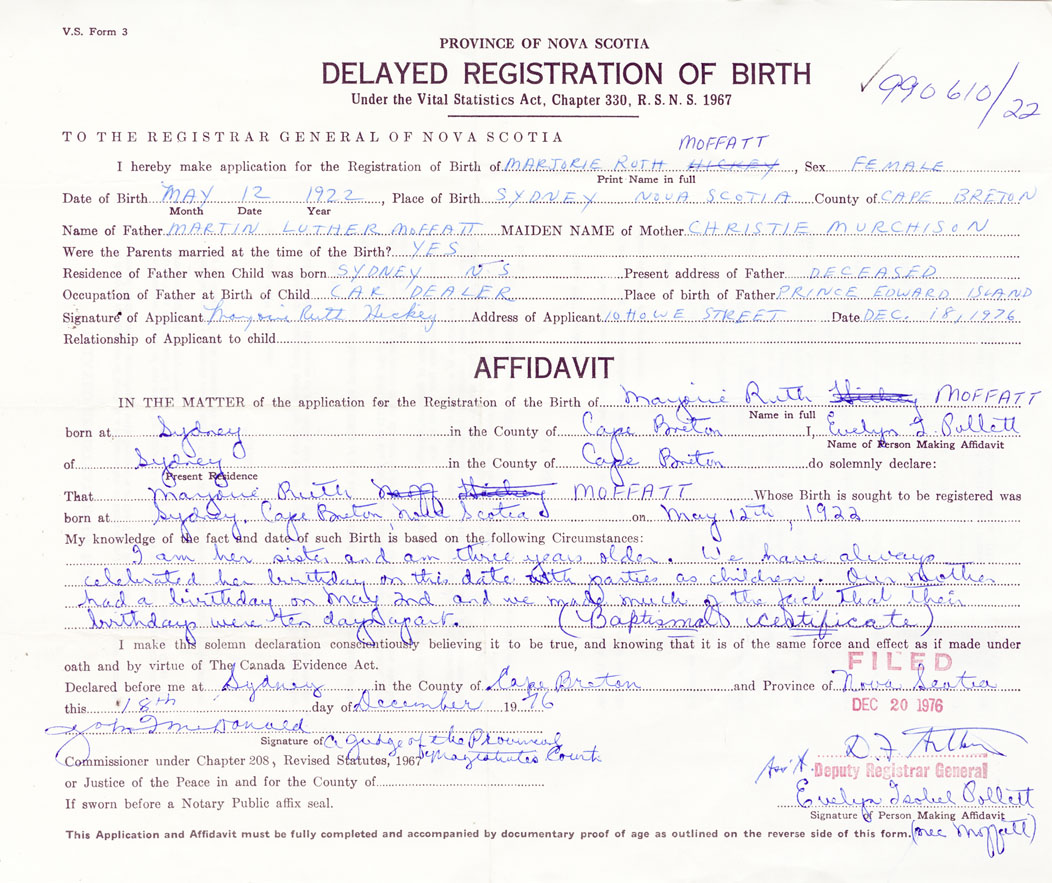 V.S. Form 3
PROVINCE OF NOVA SCOTIA
DELAYED REGISTRATION OF BIRTH
Under the Vital Statistics Act, Chapter 330, R.S.N.S. 1967
✓990610/22
TO THE REGISTRAR GENERAL OF NOVA SCOTIA
MOFFATT
I hereby make application for the Registration of Birth of MARJORIE RUTH HICKEY, Sex FEMALE
Print Name in full
Date of Birth MAY 12 1922, Place of Birth SYDNEY NOVA SCOTIA County of CAPE BRETON
Month Date Year
Name of Father MARTIN LUTHER MOFFATT MAIDEN NAME of Mother CHRISTIE MURCHISON
Were the Parents married at the time of the Birth? YES
Residence of Father when Child was born SYDNEY NS Present address of Father DECEASED
Occupation of Father at Birth of Child CAR DEALER Place of birth of Father PRINCE EDWARD ISLAND
Signature of Applicant Marjorie Ruth Hickey Address of Applicant 10 HOWE STREET Date DEC. 18, 1976
Relationship of Applicant to child
AFFIDAVIT
IN THE MATTER of the application for the Registration of the Birth of Marjorie Ruth Hickey MOFFATT
Name in full
born at Sydney in the County of Cape Breton I, Evelyn I. Pollett
Name of Person Making Affidavit
of Sydney in the County of Cape Breton do solemnly declare:
Present Residence
That Marjorie Ruth Moff Hickey MOFFATT Whose Birth is sought to be registered was
born at Sydney, Cape Breton, Nova Scotia on May 12th, 1922
My knowledge of the fact and date of such Birth is based on the following Circumstances:
I am her sister and am three years older. We have always
celebrated her birthday on this date with parties as children. Our Mother
had a birthday on May 2nd and we made much of the fact that their
birthdays were ten days apart. (Baptismal certificate)
I make this solemn declaration conscientiously believing it to be true, and knowing that it is of the same force and effect as if made under
oath and by virtue of The Canada Evidence Act.
FILED
Declared before me at Sydney in the County of Cape Breton and Province of Nova Scotia
this 18th day of December 1976
DEC 20 1976
John F McDonald
Signature of a Judge of the Provincial
Magistrates Court
Commissioner under Chapter 208, Revised Statutes, 1967
Deputy Registrar General
or Justice of the Peace in and for the County of
Evelyn Isobel Pollett
If sworn before a Notary Public affix seal.
Signature of Person Making Affidavit
(nee Moffatt)
This Application and Affidavit must be fully completed and accompanied by documentary proof of age as outlined on the reverse side of this form.